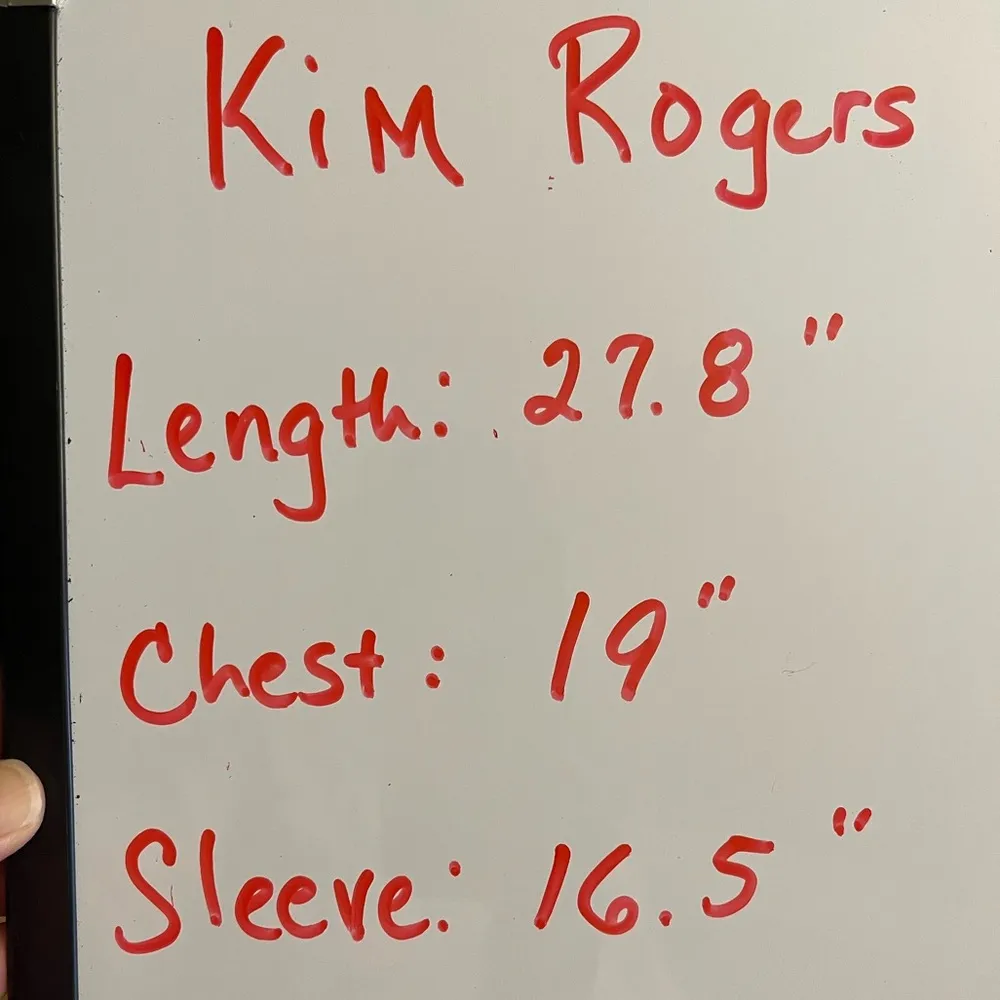 Kim Rogers
Length: 27.8"
Chest: 19"
Sleeve: 16.5"